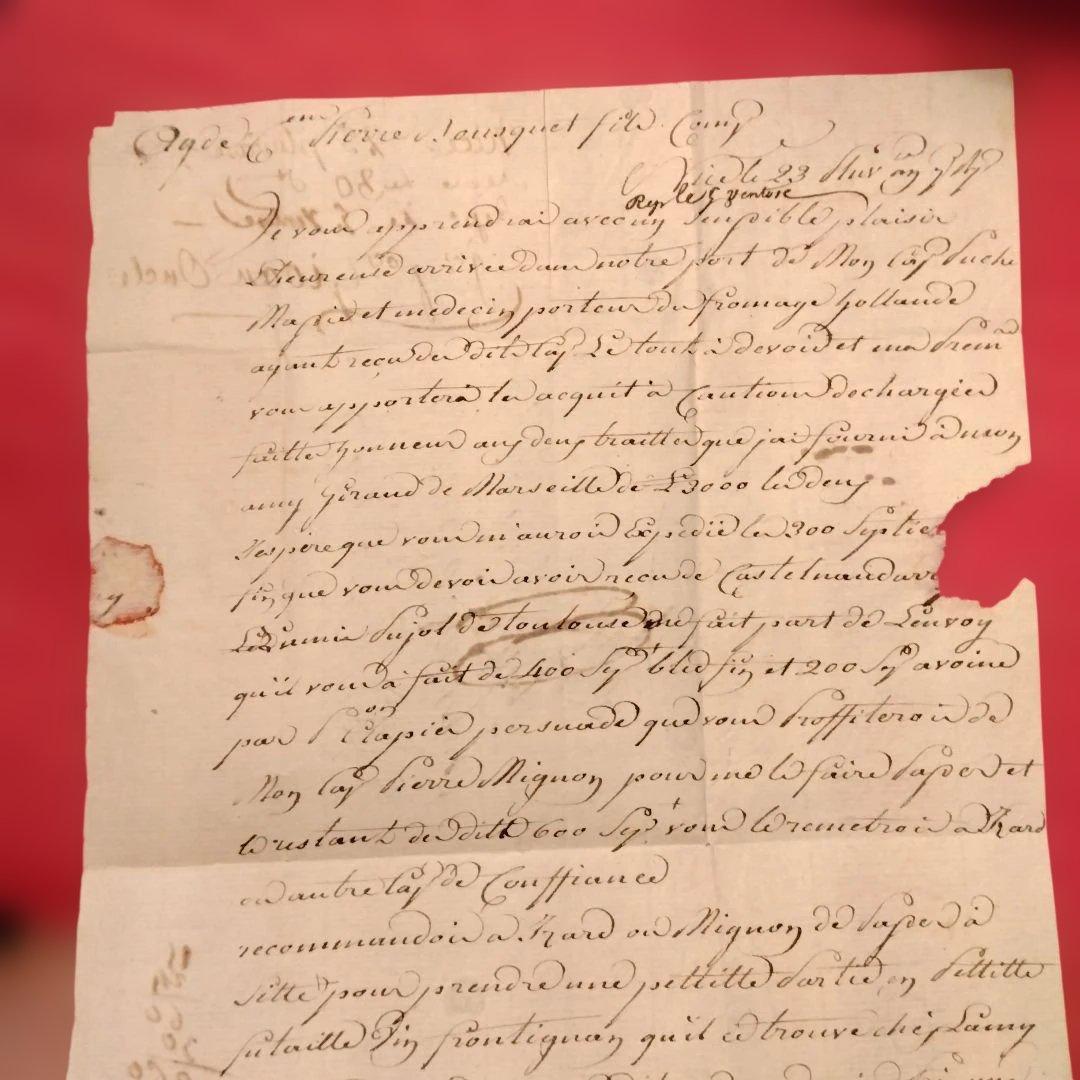 Agde Cen Pierre Bousquet fils Comp
Nice le 23 Pluv an 7
Rep le 5 ventose
Je vous apprendrai avec un senssible plaisir
l'heureuse arrivée dans notre port de Mon Cap Puche
Massie et medecin porteur du fromage hollande
ayant reçu des dits Cap Le tout à devoir et ma Prem
vous apportera les acquit à Cautions dechargées
faitte honneur aux deux traittes que j'ai fourni à mon
amy Giraud de Marseille de £3000 les deux
J'espere que vous m'aurois Expedié les 300 Septie
fin que vous devois avoir reçu de Castelnaudary
L'amie Pujol de toulouse me fait part de L'envoy
qu'il vous à fait de 400 Sep bled fin et 200 Sep avoine
par persuadé que vous Proffiterois de
Mon Cap Pierre Mignon pour me le faire Passer et
le restant des ditt 600 Sep vous le remetrois a Izard
ou autre Cap de Conffiance
recommandois a Izard ou Mignon de Passer à
Sette pour prendre une pettitte Partie en Pettitte
futaille Vin frontignan qu'il ce trouve chés Lamy